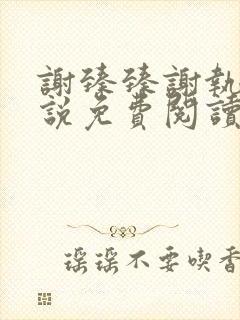 謝臻臻謝執
說免費閱讀
瑶瑶不要喫香